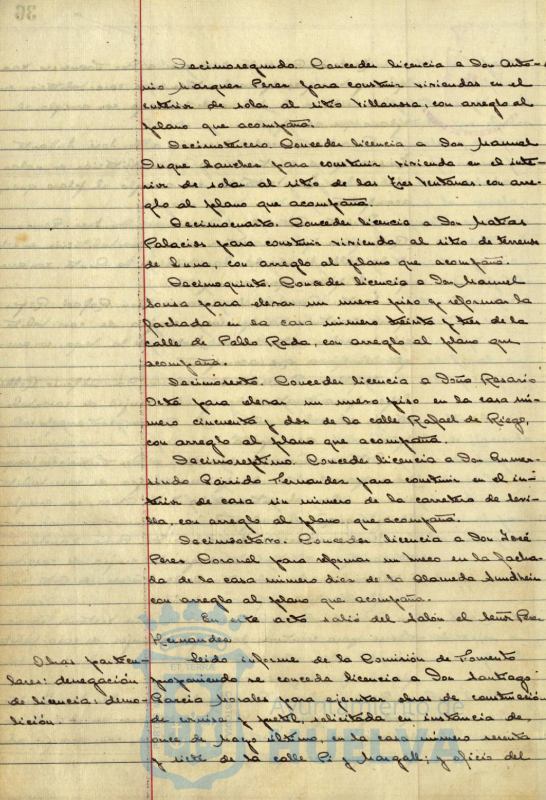 36
Decimosegundo. Conceder licencia a Don Anto-
nio Marquez Perez para construir viviendas en el
interior de solar al sitio Villarrosa, con arreglo al
plano que acompaña.
Decimotercero. Conceder licencia a Don Manuel
Duque Sanchez para construir vivienda en el inte-
rior de solar al sitio de las Tres Ventanas con arre-
glo al plano que acompaña.
Decimocuarto. Conceder licencia a Don Matias
Palacios para construir vivienda al sitio de terrenos
de Luna, con arreglo al plano que acompaña.
Decimoquinto. Conceder licencia a Don Manuel
Sousa para elevar un nuevo piso y reformar la
fachada en la casa número treinta y tres de la
calle de Pablo Rada, con arreglo al plano que
acompaña.
Decimosexto. Conceder licencia a Doña Rosario
Orta para elevar un nuevo piso en la casa nú-
mero cincuenta y dos de la calle Rafael de Riego,
con arreglo al plano que acompaña.
Decimoseptimo. Conceder licencia a Don Gumer-
sindo Garrido Fernandez para construir en el in-
terior de casa sin número de la carretera de Sevi-
lla, con arreglo al plano que acompaña.
Decimoctavo. Conceder licencia a Don José
Perez Coronel para reformar un hueco en la facha-
da de la casa número diez de la Alameda Sundheim
con arreglo al plano que acompaña.
En este acto salió del Salón el Señor Perez
Hernandez
Obras particu-
lares: denegación
de licencia: demo-
lición.
Leido informe de la Comisión de Fomento
proponiendo se conceda licencia a Don Santiago
Garcia Morales para ejecutar obras de construcció
de cornisa y pretil, solicitada en instancia de
once de Mayo último, en la casa número sesenta
y siete de la calle Pi y Margall; y oficio del
Ayuntamiento de
HUELVA